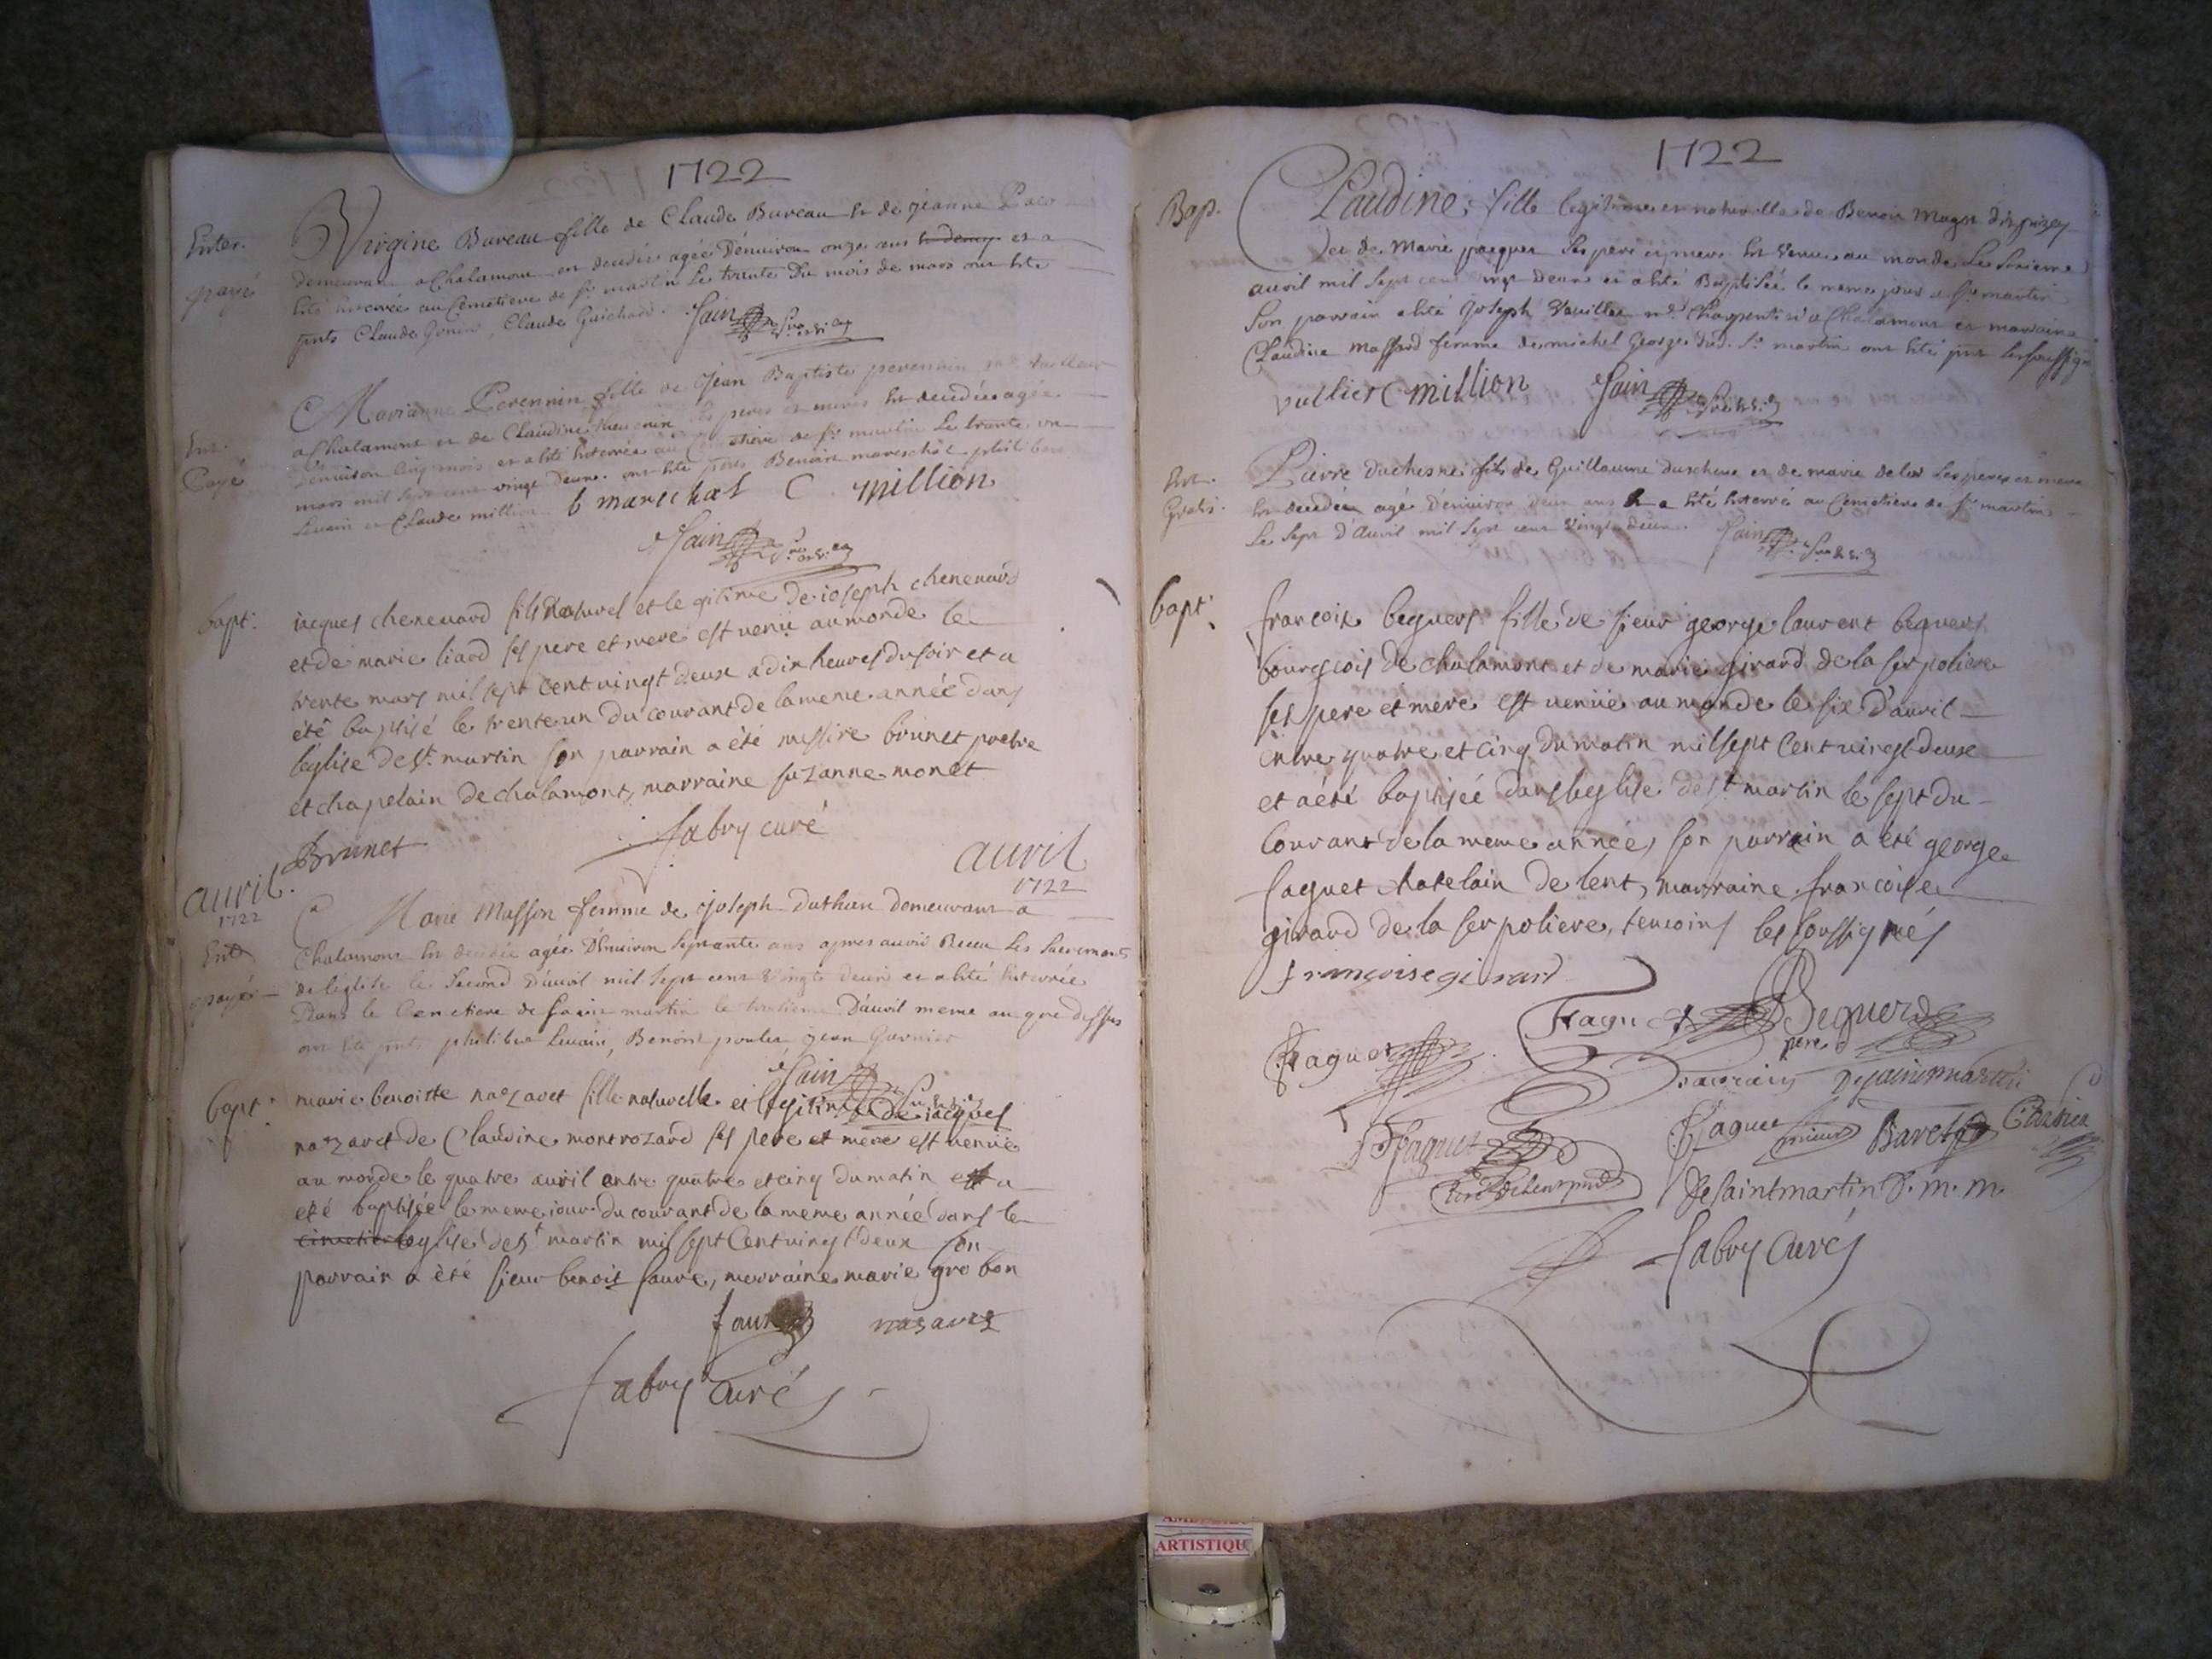 1722
Enter.
payé
Virgine Bureau fille de Claude Bureau et de jeanne
demeurant a Chalamont est decedée agée D'environ onze ans et demy et a
été Enterrée au Cemetiere de St martin Le trente Du mois de mars ont été
pnts Claude Claude Guichard. Jain
Ent.
Payé
Marianne Perennin fille de Jean Baptiste perennin
a Chalamont et de Claudine ses peres et meres est decedée agée
D'environ Cinq mois et a été Enterrée au Cemetiere de St martin Le trente un
mars mil sept cent vingt deux. ont été pnts Benoit mareschal philibert
Levain et Claude million b mareschal C million
Jain
bapt:
jacques chenevard fils naturel et legitime de joseph chenevard
et de marie liard ses pere et mere est venü au monde le
trente mars mil sept cent vingt deux a dix heures du soir et a
été baptisé le trente un du courant de la meme année dans
leglise de St. martin son parrain a été messire brunet pretre
et chapelain de chalamont, marraine suzanne monet
Brunet fabry curé
avril. avril
1722 1722
Ent
payé
Marie Masson femme de Joseph duthien demeurant a
Chalamont est decedée agée D'environ septante ans apres avoir Receu Les Sacrements
de leglise le Second D'avril mil sept cent Vingt deux et a été Enterrée
Dans le Cemetiere de saint martin le troisieme D'avril meme an que dessus
ont été pnts philibert Levain, Benoist poulet jean Garnier
Jain
bapt:
marie benoitte nazaret fille naturelle et legitime de jacques
nazaret de Claudine montrozard ses pere et mere est venüe
au monde le quatre avril entre quatre et cinq du matin et a
été baptisée le meme jour du courant de la meme année dans le
cimetier leglise de St martin mil sept cent vingt deux son
parrain a été sieur benoit faure, marraine marie grobon
faure nazaret
fabry curé
1722
Bap.
Claudine fille legitime et naturelle de Benoit
et de Marie jacques ses pere et mere est Venue au monde Le sixieme
avril mil sept cent vingt Deux et a été Baptisée le meme jour a St martin
Son parrain a été Joseph Vuillier md. Charpentier a Chalamont et marraine
Claudine massard femme de michel George dud. St martin ont été pnts Les soussignes
vullier C million Jain
Ent.
Gratis.
Pierre duchesne fils de Guillaume duschene et de marie ses peres et mere
est decedée agé D'environ Deux ans et a été Enterré au Cemetiere de St martin
Le sept d'Avril mil sept cent Vingt deux. Jain
bapt:
francoise beguers fille de sieur george laurent beguers
bourgeois de chalamont et de marie girard de la serpoliere
ses pere et mere est venüe au monde le six d'avril
entre quatre et cinq du matin mil sept cent vingt deux
et a été baptisée dans leglise de St martin le sept du
Courant de la meme année, son parrain a été george
faguet chatelain de lent, marraine francoise
girard de la serpoliere, temoins les soussignés
françoise girard
Fagu et Beguerd
père
Faguet
Desaintmartin
Faguet Faguet mineur Baret
Desaintmartin D. m. m.
fabry Curé
ARTISTIQU